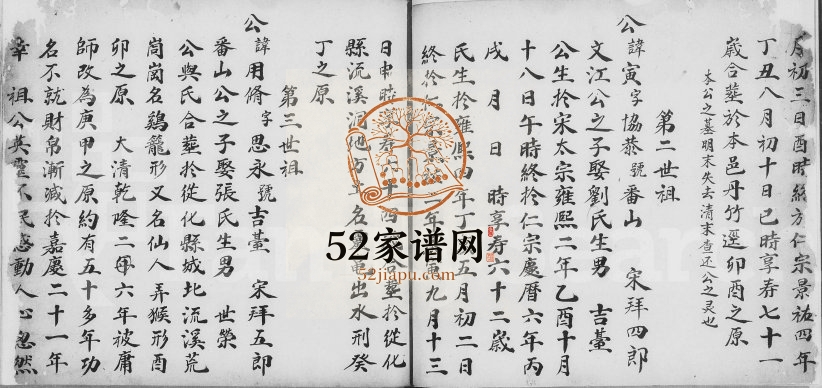 月初三日酉時終方仁宗景祐四年
丁丑八月初十日巳時享寿七十一
歲合塟於本邑丹竹逕卯酉之原
本公之墓明末失去清末查还公之灵也
第二世祖
公諱寅字協恭號番山 宋拜四郎
文江公之子娶劉氏生男 吉䑓
公生於宋太宗雍熙二年乙酉十月
十八日午時終於仁宗慶曆六年丙
戌 月 日 時享寿六十二歲
氏生於雍熙四年丁 五月初二日
終於仁宗 二年 九月十三
日申時 四 合塟於從化
縣流溪 地 出水刑癸
丁之原
第三世祖
公諱用脩字思永號吉䑓 宋拜五郎
番山公之子娶張氏生男 世榮
公與氏合塟於從化縣城北流溪荒
崗崗名鷄籠形又名仙人弄猴形酉
卯之原 大清乾隆二 六年被庸
師改為庚甲之原約有五十多年功
名不就財帛漸减於嘉慶二十一年
幸 祖公英靈不 感動人心忽然
52家谱网
52jiapu.com